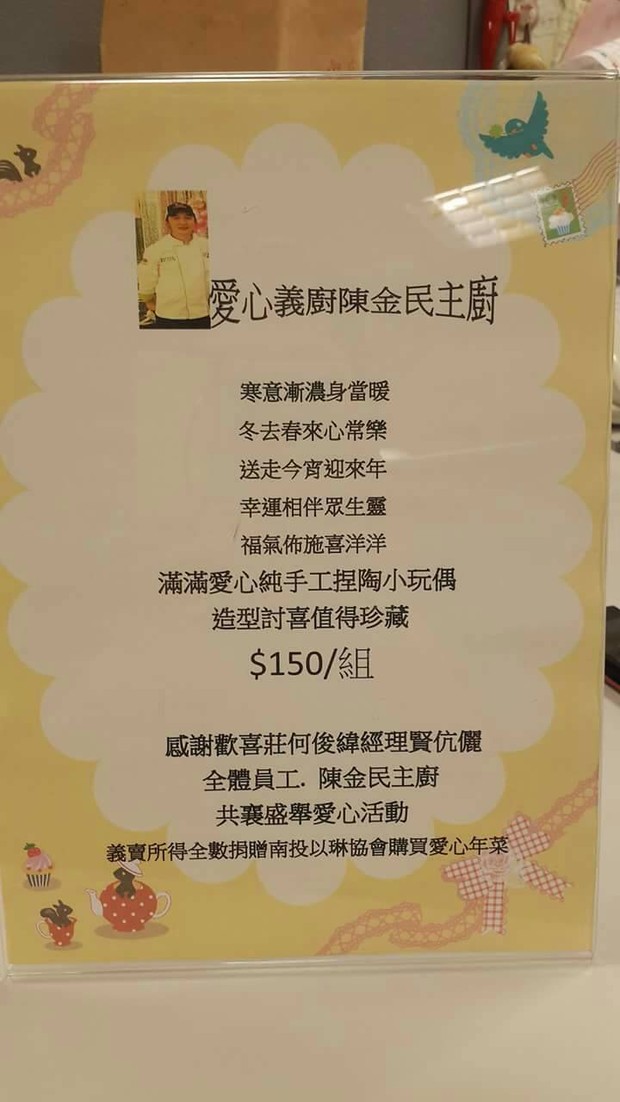 愛心義廚陳金民主廚
寒意漸濃身當暖
冬去春來心常樂
送走今宵迎來年
幸運相伴眾生靈
福氣佈施喜洋洋
滿滿愛心純手工捏陶小玩偶
造型討喜值得珍藏
$150/組
感謝歡喜莊何俊緯經理賢伉儷
全體員工. 陳金民主廚
共襄盛舉愛心活動
義賣所得全數捐贈南投以琳協會購買愛心年菜